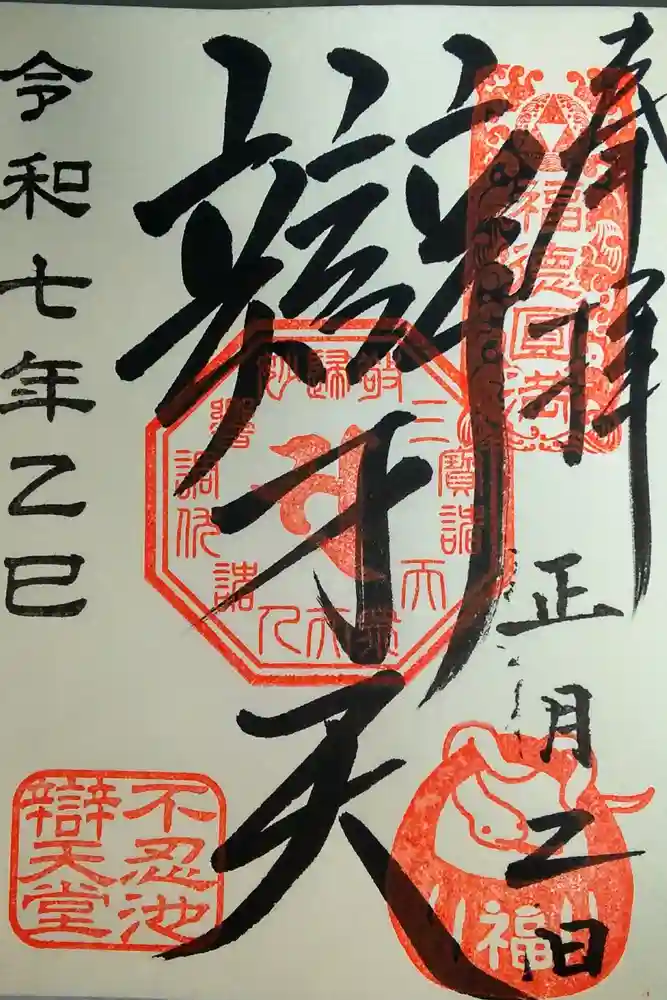 奉拝
正月二日
福德圓満
辯才天
令和七年乙巳
不忍池
辯天堂
福